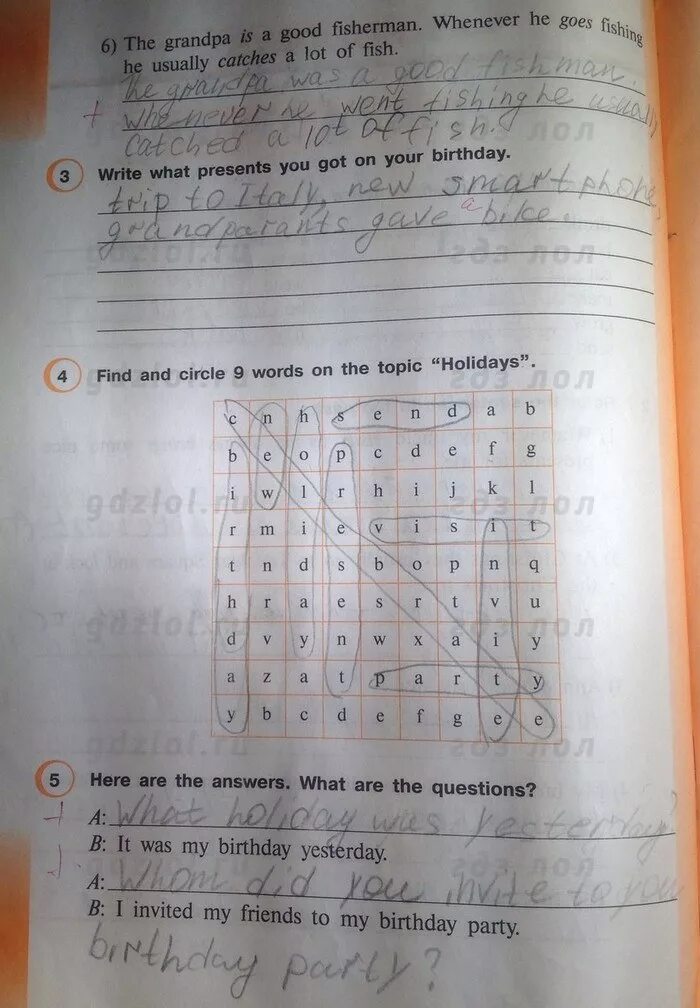 6) The grandpa is a good fisherman. Whenever he goes fishing
he usually catches a lot of fish.
he grandpa was a good fishman.
+ whenever he went fishing he usually
catched a lot of fish.
3 Write what presents you got on your birthday.
trip to Italy, new smartphone,
grandparants gave a bike.
4 Find and circle 9 words on the topic “Holidays”.
c n h s e n d a b
b e o p c d e f g
i w l r h i j k l
r m i e v i s i t
t n d s b o p n q
h r a e s r t v u
d v y n w x a i y
a z a t p a r t y
y b c d e f g e e
5 Here are the answers. What are the questions?
+ A: What holiday was yesterday?
B: It was my birthday yesterday.
A: Whom did you invite to you
B: I invited my friends to my birthday party.
birthday party?
gdzlol.ru